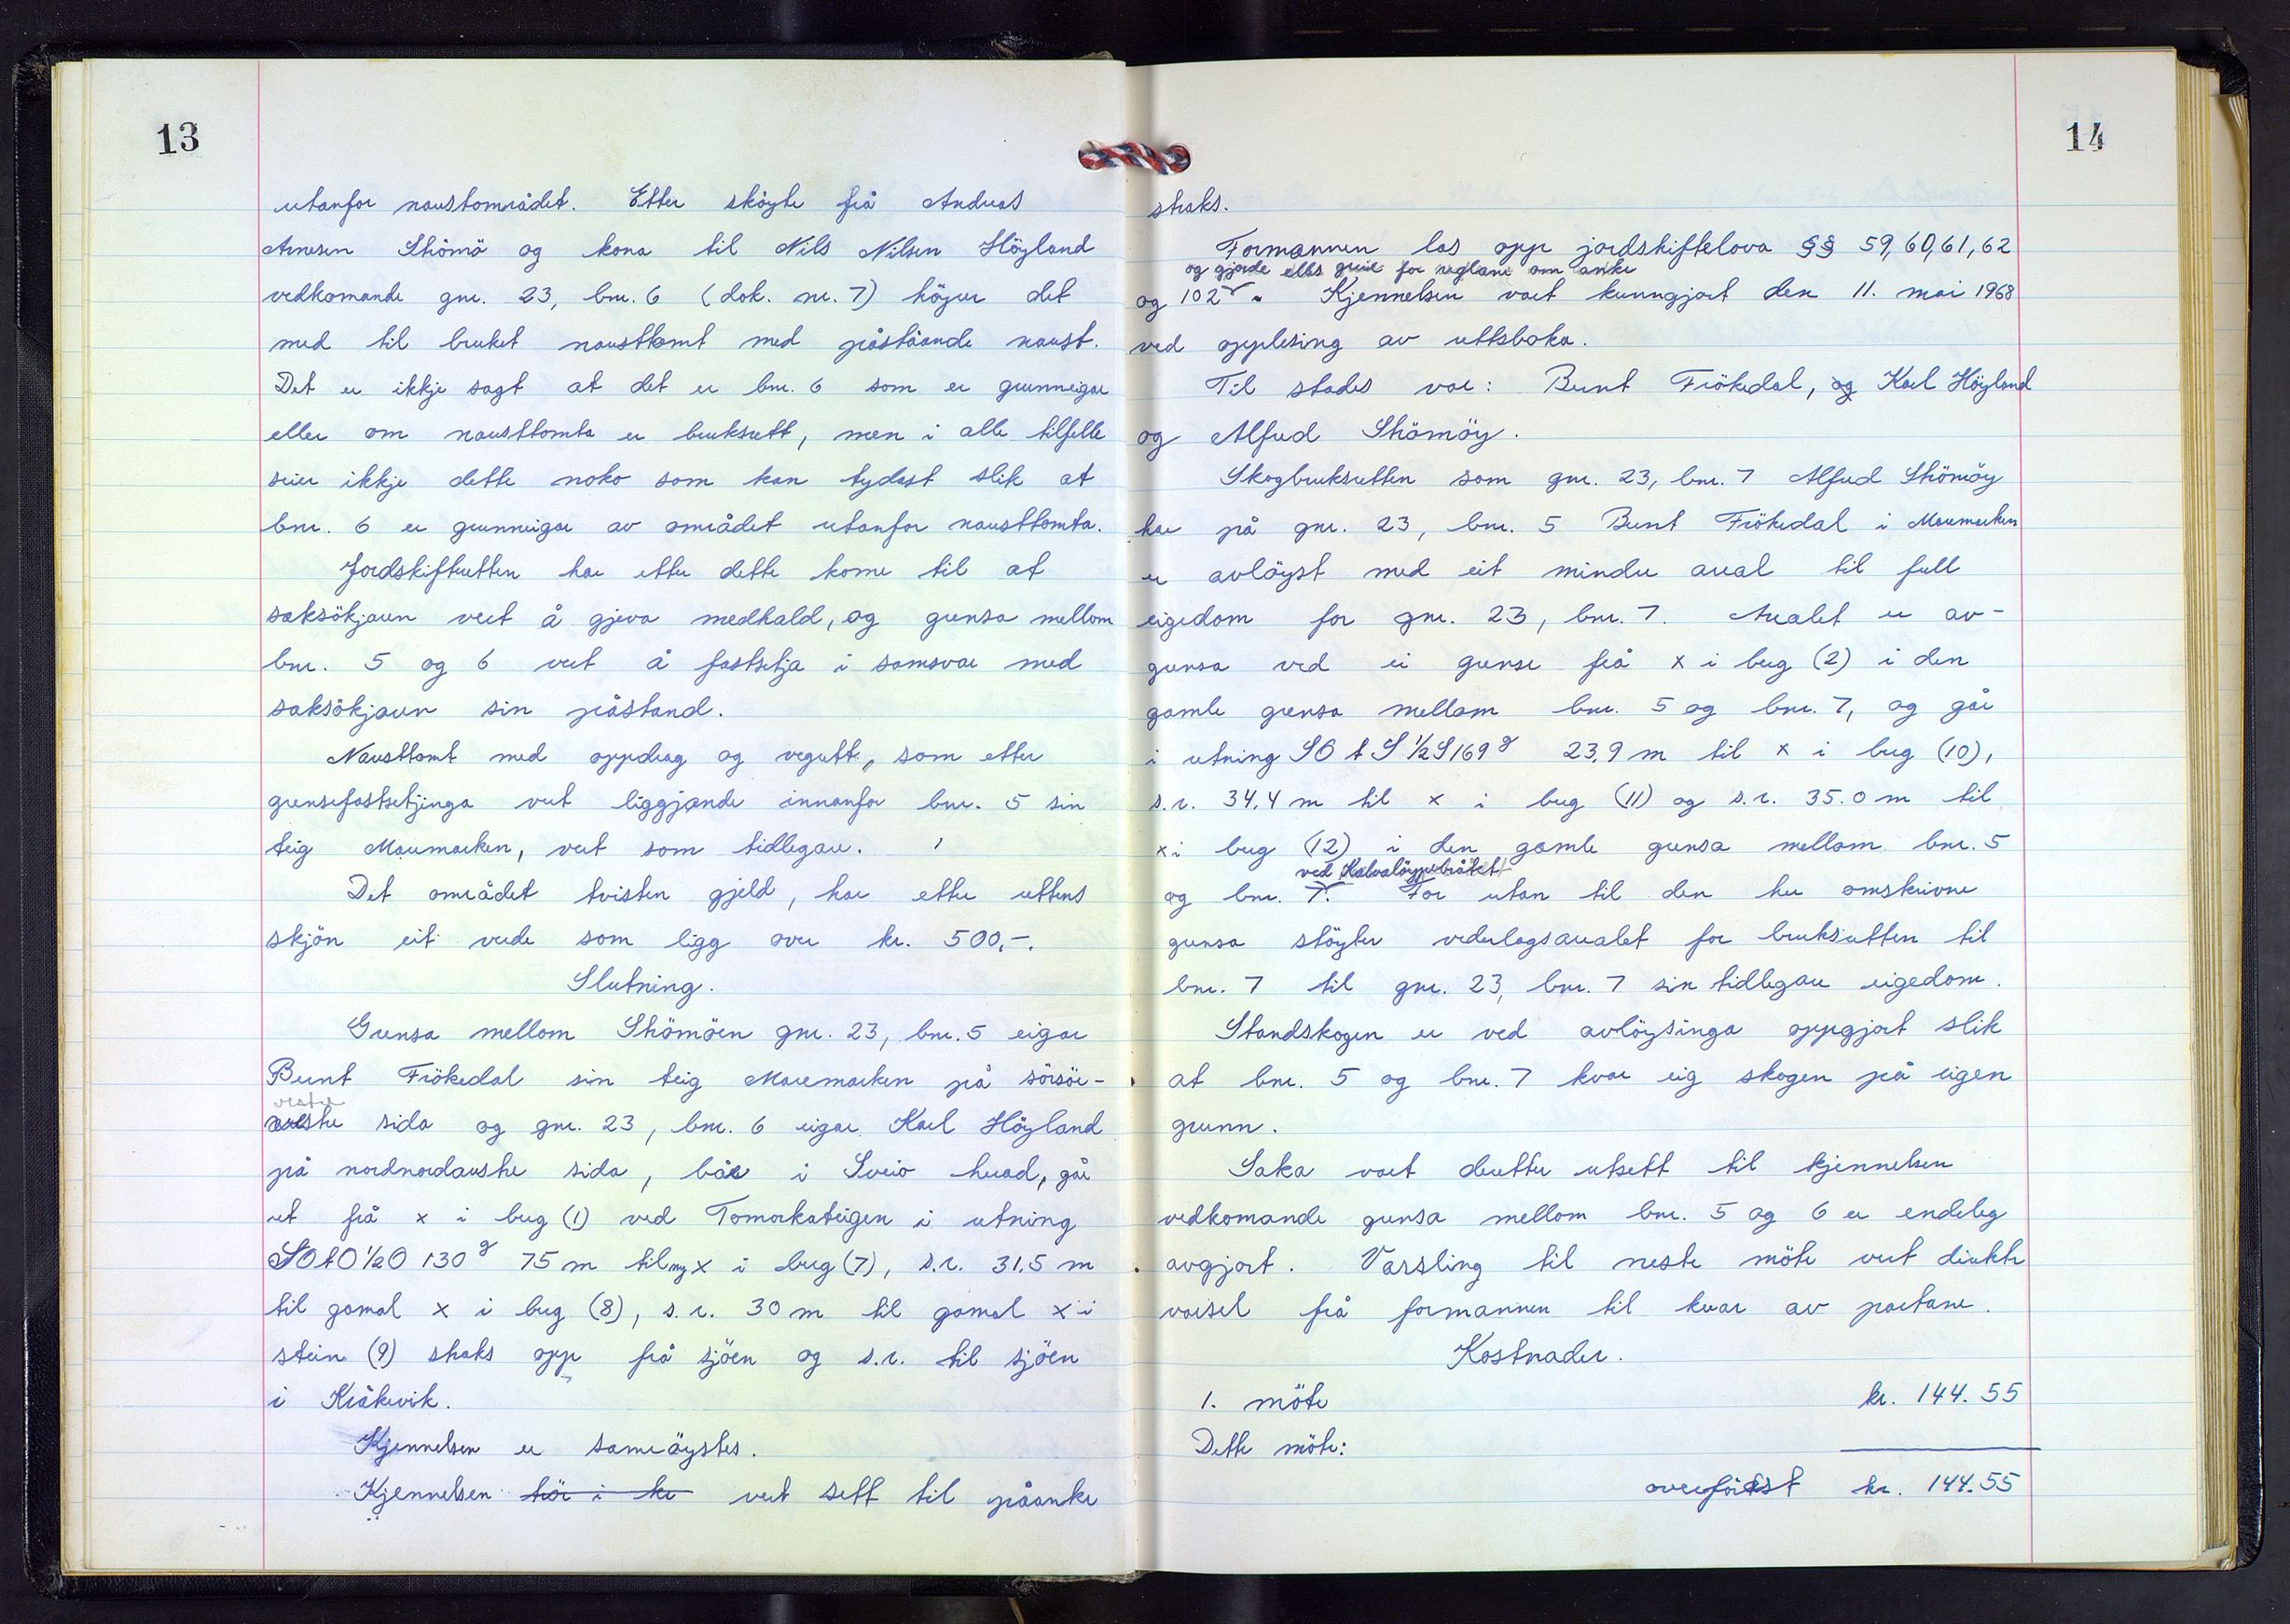 13
utanfor naustområdet. Etter sköyte frå Andreas
Arnesen Strömö og kona til Nils Nilsen Höyland
vedkomande gnr. 23, bnr. 6 (dok. nr. 7) höyrer det
med til bruket nausttomt med påståande naust.
Det er ikkje sagt at det er bnr. 6 som er grunneigar
eller om nausttomta er bruksrett, men i alle tilfelle
seier ikkje dette noko som kan tydast slik at
bnr. 6 er grunneigar av området utanfor nausttomta.
Jordskifteretten har etter dette kome til at
saksökjaren vert å gjeva medhald, og grensa mellom
bnr. 5 og 6 vert å fastsetja i samsvar med
saksökjaren sin påstand.
Nausttomt med oppdrag og vegrett, som etter
grensefastsetjinga vert liggjande innanfor bnr. 5 sin
teig Maremarken, vert som tidlegare.
Det området tvisten gjeld, har etter rettens
skjön eit verde som ligg over kr. 500,-.
Slutning.
Grensa mellom Strömöen gnr. 23, bnr. 5 eigar
Bernt Frökedal sin teig Maremarken på sörsör-
vestre
sida og gnr. 23, bnr. 6 eigar Karl Höyland
på nordnordaustre sida, båe i Sveio herad, går
ut frå x i berg (1) ved Tomarkateigen i retning
SOtO½O 130g 75 m til ny x i berg (7), s.r. 31.5 m
til gamal x i berg (8), s.r. 30 m til gamal x i
stein (9) straks opp frå sjöen og s.r. til sjöen
i Kråkevik.
Kjennelsen er samröystes.
Kjennelsen hör i he vert sett til påanke
14
straks.
Formannen las opp jordskiftelova §§ 59, 60, 61, 62
og gjorde elles greie for reglane om anke
og 102. Kjennelsen vart kunngjort den 11. mai 1968
ved opplesing av rettsboka.
Til stades var: Bernt Frökedal, og Karl Höyland
og Alfred Strömöy.
Skogbruksretten som gnr. 23, bnr. 7 Alfred Strömöy
har på gnr. 23, bnr. 5 Bernt Frökedal i Maremarken
er avlöyst med eit mindre areal til full
eigedom for gnr. 23, bnr. 7. Arealet er av-
grensa ved ei grense frå x i berg (2) i den
gamle grensa mellom bnr. 5 og bnr. 7, og går
i retning SO t S ½S 169g 23,9 m til x i berg (10),
s.r. 34,4 m til x i berg (11) og s.r. 35.0 m til
x i berg (12) i den gamle grensa mellom bnr. 5
ved Kalvalöypebråtet
og bnr. 7. For utan til den her omskrivne
grensa stöyter vederlagsarealet for bruksretten til
bnr. 7 til gnr. 23, bnr. 7 sin tidlegare eigedom.
Standskogen er ved avlöysinga oppgjort slik
at bnr. 5 og bnr. 7 kvar eig skogen på eigen
grunn.
Saka vart deretter utsett til kjennelsen
vedkomande grensa mellom bnr. 5 og 6 er endeleg
avgjort. Varsling til neste möte vert direkte
varsel frå formannen til kvar av partane.
Kostnader.
1. möte kr. 144.55
Dette möte:
overförast kr. 144.55